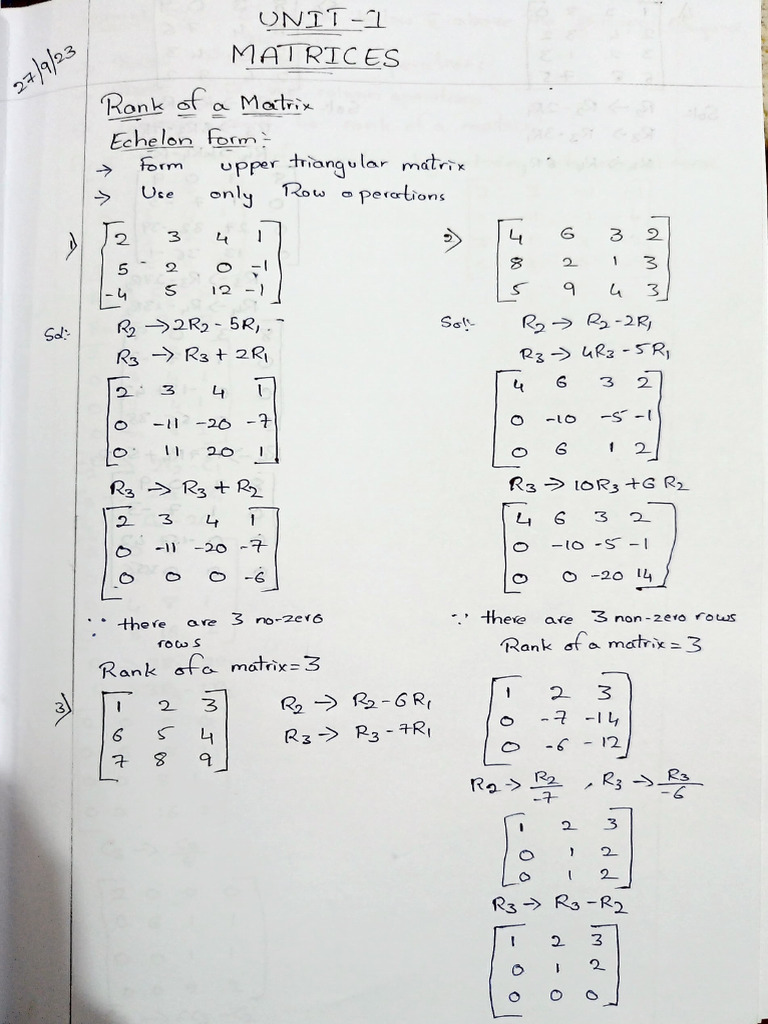 27/9/23
UNIT-1
MATRICES
Rank of a Matrix
Echelon Form:-
→ Form upper triangular matrix
→ Use only Row operations
1)
2 3 4 1
5 2 0 -1
-4 5 12 -1
Sol:-
R2 → 2R2 - 5R1
R3 → R3 + 2R1
2 3 4 1
0 -11 -20 -7
0 11 20 1
R3 → R3 + R2
2 3 4 1
0 -11 -20 -7
0 0 0 -6
∵ there are 3 no-zero
rows
Rank of a matrix = 3
2)
4 6 3 2
8 2 1 3
5 9 4 3
Sol:-
R2 → R2 - 2R1
R3 → 4R3 - 5R1
4 6 3 2
0 -10 -5 -1
0 6 1 2
R3 → 10R3 + 6R2
4 6 3 2
0 -10 -5 -1
0 0 -20 14
∵ there are 3 non-zero rows
Rank of a matrix = 3
3)
1 2 3
6 5 4
7 8 9
R2 → R2 - 6R1
R3 → R3 - 7R1
1 2 3
0 -7 -14
0 -6 -12
R2 → R2/-7 , R3 → R3/-6
1 2 3
0 1 2
0 1 2
R3 → R3 - R2
1 2 3
0 1 2
0 0 0